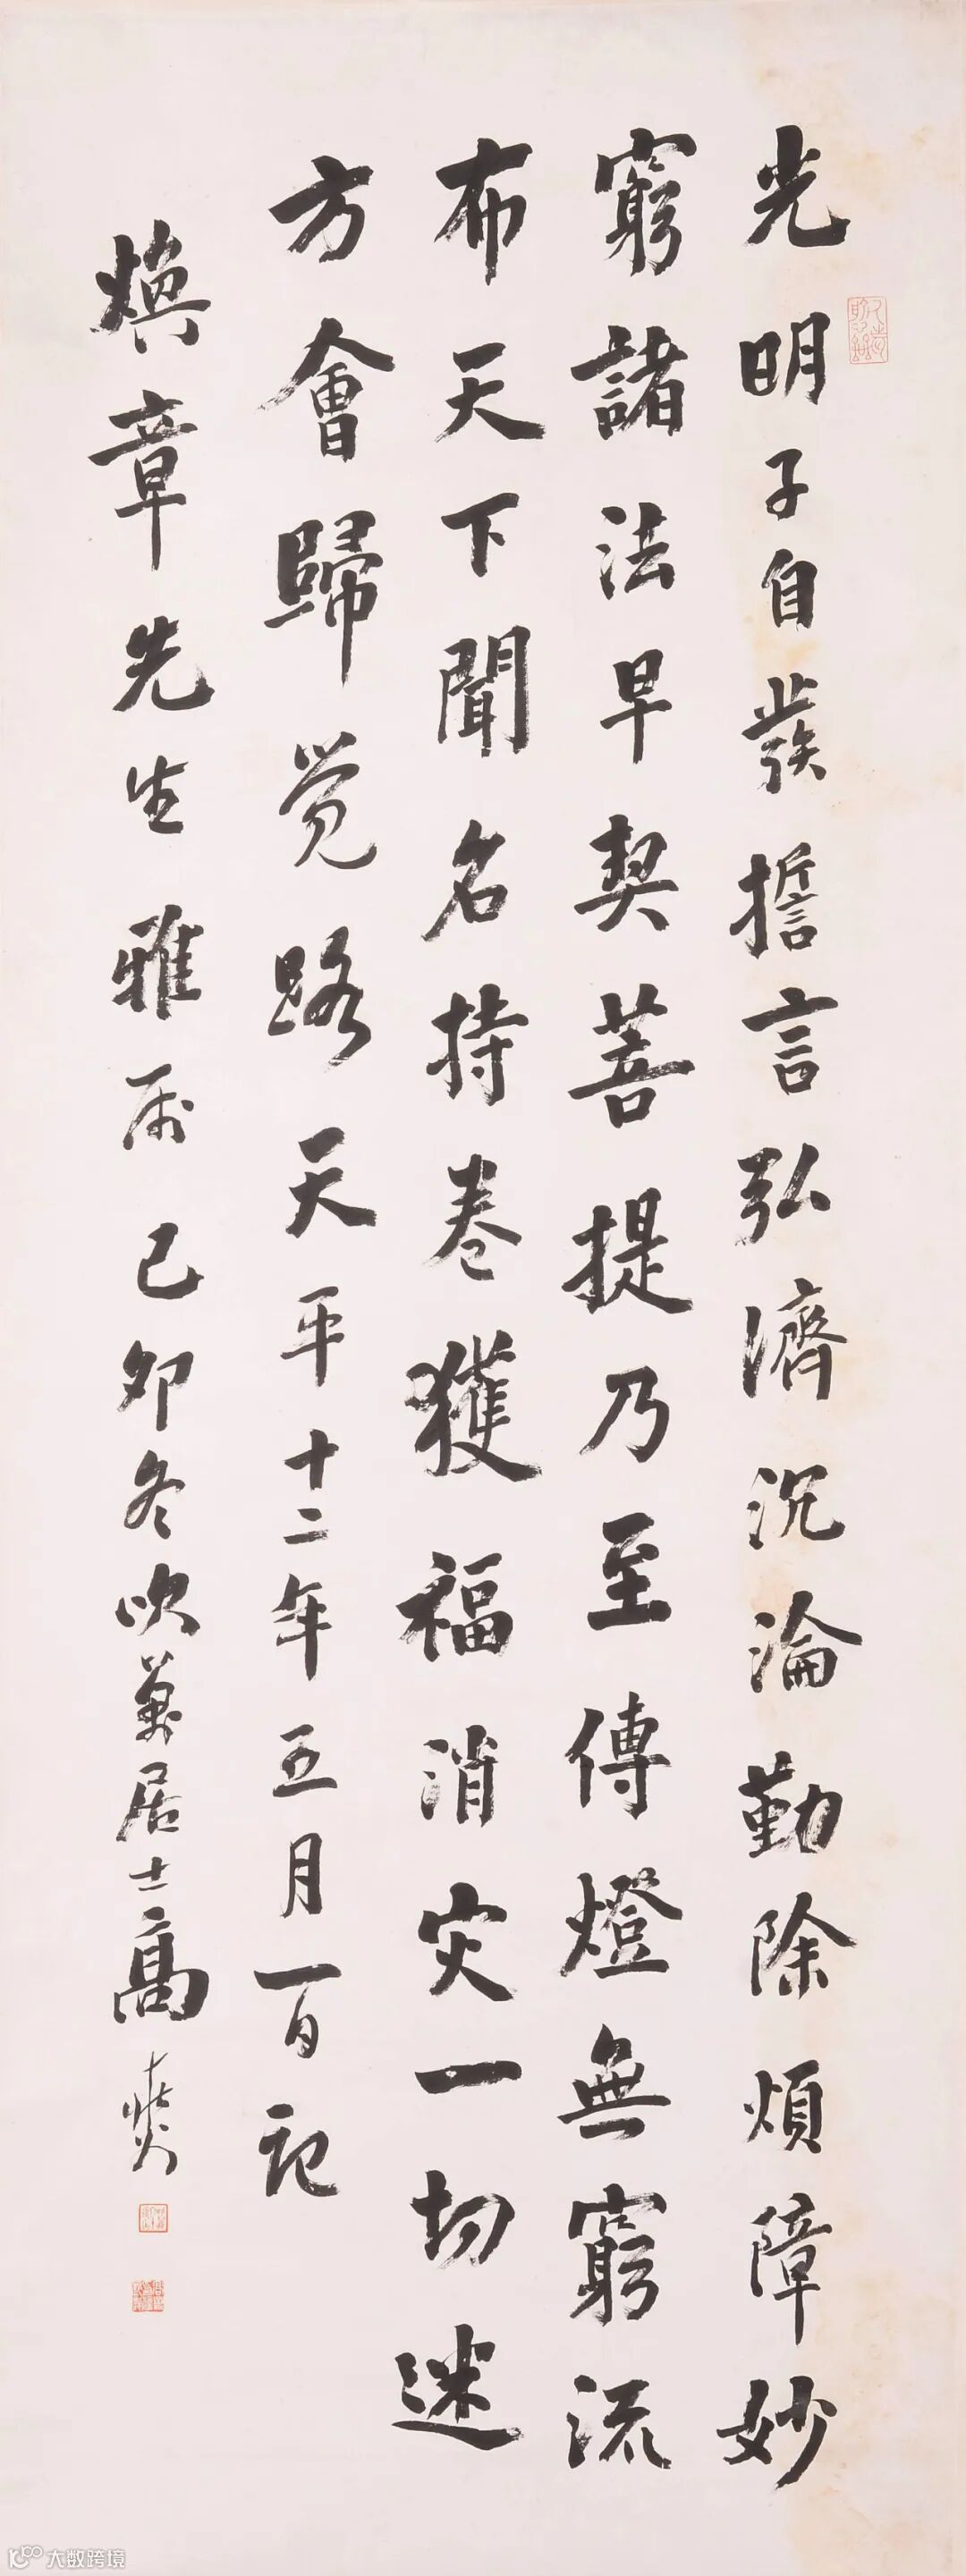 光明子自發擔言弘濟沉淪勤除煩障妙
窮諸法早契菩提乃至傳燈無窮流
布天下聞名持卷獲福消灾一切迷
方會歸覺路天平十二年五月一日記
煥章先生雅属己卯冬吹萬居士高燮
大数跨境